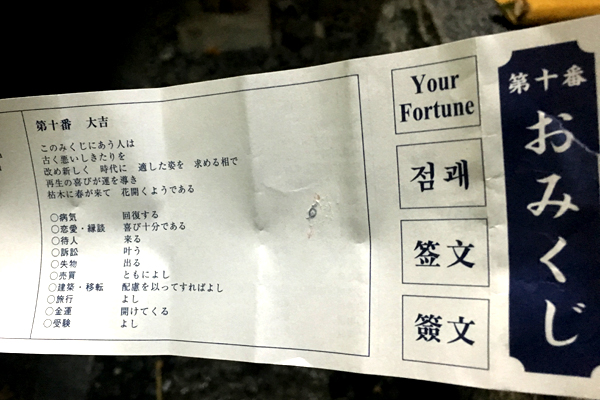 第十番
おみくじ
Your
Fortune
점괘
签文
簽文
第十番 大吉
このみくじにあう人は
古く悪いしきたりを
改め新しく 時代に 適した姿を 求める相で
再生の喜びが運を導き
枯木に春が来て 花開くようである
○病気 回復する
○恋愛・縁談 喜び十分である
○待人 来る
○訴訟 叶う
○失物 出る
○売買 ともによし
○建築・移転 配慮を以ってすればよし
○旅行 よし
○金運 開けてくる
○受験 よし